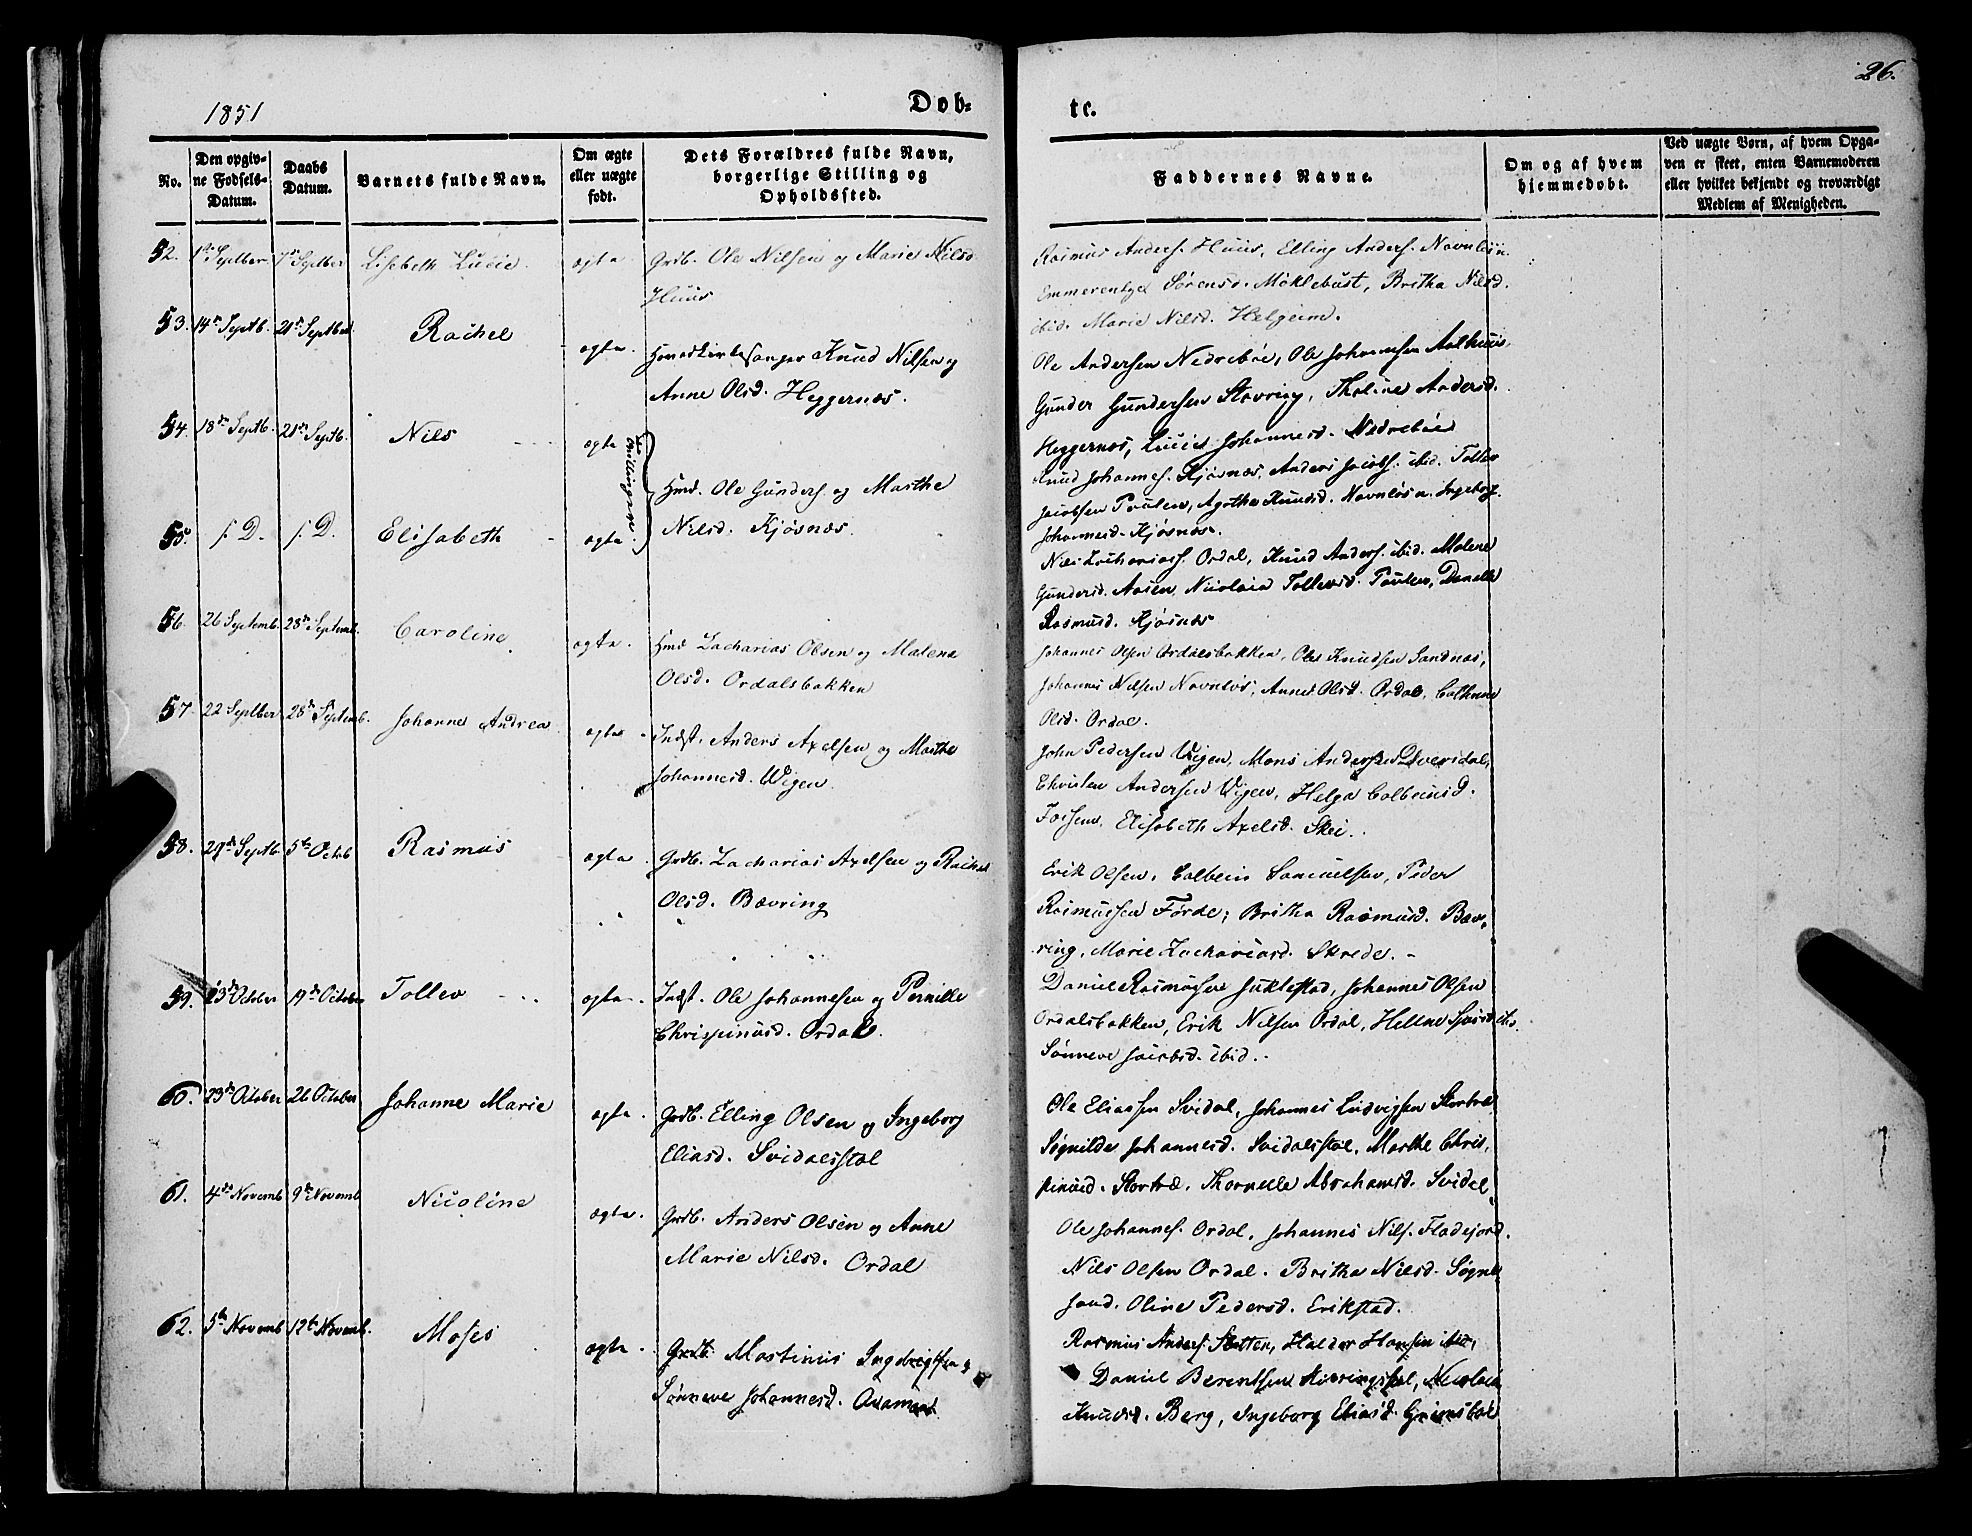 1851
Dob-
te.
26.
No.
Den opgiv-
ne Fødsels-
Datum.
Daabs
Datum.
Barnets fulde Navn.
Om ægte
eller uægte
født.
Dets Forældres fulde Navn,
borgerlige Stilling og
Opholdssted.
Faddernes Navne.
Om og af hvem
hjemmedøbt.
Ved uægte Børn, af hvem Opga-
ven er skeet, enten Barnemoderen
eller hvilket bekjendt og troværdigt
Medlem af Menigheden.
52. Septber 7de Septber Lisabeth Lucie ægte Grdb. Ole Nilsen og Marie Nilsd.
Huus
Rasmus Anders. Huus, Elling Anders. Navnløs
Sørensd. Møklebust, Britha Nilsd.
ibid. Marie Nilsd. Helgeim.
53. 14de Septb. 21de Septber Rachel ægte. Knud Nilsen og
Anne Olsd. Heggernæs.
Ole Andersen Nedrebøe, Ole Johannesen Aalhuus,
Gunder Gundersen Støvring, Andersd.
Heggernæs, Lucie Johannesd. Nedrebøe
54. 18de Septb. 21de Septb. Nils ægte
Tvillinger
Hmd. Ole Gunders. og Marthe
Nilsd. Kjøsnæs.
Knud Johannes. Kjøsnæs, Anders Jacobs. ibid. Tollev
Jacobsen Paulen, Agatha Knudsd. Navnløs. Ingeborg
Johannesd. Kjøsnæs.
55. s. D. s. D. Elisabeth ægte.
Zachariass. Ordal, Knud Anders. ibid. Malene
Gundersd. Aasen, Nicolaia Tollevsd. Paulen, Danelle
Rasmusd. Kjøsnæs
56. 26 Septemb. 28de Septemb. Caroline ægte. Hmd Zacharias Olsen og Malene
Olsd. Ordalsbakken
Johannes Olsen Ordalsbakken, Ole Knudsen Sandnæs,
Johannes Nilsen Navnløs, Anne Olsd. Ordal,
Olsd. Ordal.
57. 22 Septber 28de Septemb. Johanne Andrea ægte Indst. Anders Axelsen og Marthe
Johannesd. Wigen.
John Pedersen Wigen, Mons Andersen
Christen Andersen Wigen, Helga Colbeinsd.
Elisabeth Axelsd. Skei.
58. 29de Septb. 5te Octob Rasmus ægte. Grdb. Zacharias Axelsen og Rachel
Olsd. Bævring
Erik Olsen, Colbein Samuelsen, Peder
Rasmussen Førde, Britha Rasmusd. Bæv-
ring, Marie Zachariasd. Skrede. -
59. 13de October 19de October Tollev ægte. Indst. Ole Johannesen og Pernille
Chrispinusd. Ordal.
Daniel Rasmusen Johannes Olsen
Ordalsbakken, Erik Nilsen Ordal,
Sønneve Jacobsd. ibid.
60. 23de October 26 October Johanne Marie ægte. Grdb. Elling Olsen og Ingeborg
Eliasd. Svidalsstøl
Ole Eliassen Svidal, Johannes Ludvigsen Stortræ
Søgnilde Johannesd. Svidalsstøl, Marthe Chris-
pinusd. Stortræ, Abrahamsd. Svidal
61. 4de Novemb 9de Novemb Nicoline ægte. Grdb. Anders Olsen og Anne
Marie Nilsd. Ordal
Ole Johannes. Ordal, Johannes Nils. Fladejord.
Nils Olsen Ordal. Britha Nilsd. Søgne-
sand. Oline Pedersd. Erikstad.
62. 5te Novemb 12te Novemb. Moses ægte. Grdb. Mostinus Ingebrigtsen og
Sønneve Johannesd.
Rasmus Anders. Slotten, Haldor Hansen ibid,
Daniel Berentsen
Knudsd. Berg, Ingeborg Eliasd. Grimsbøe